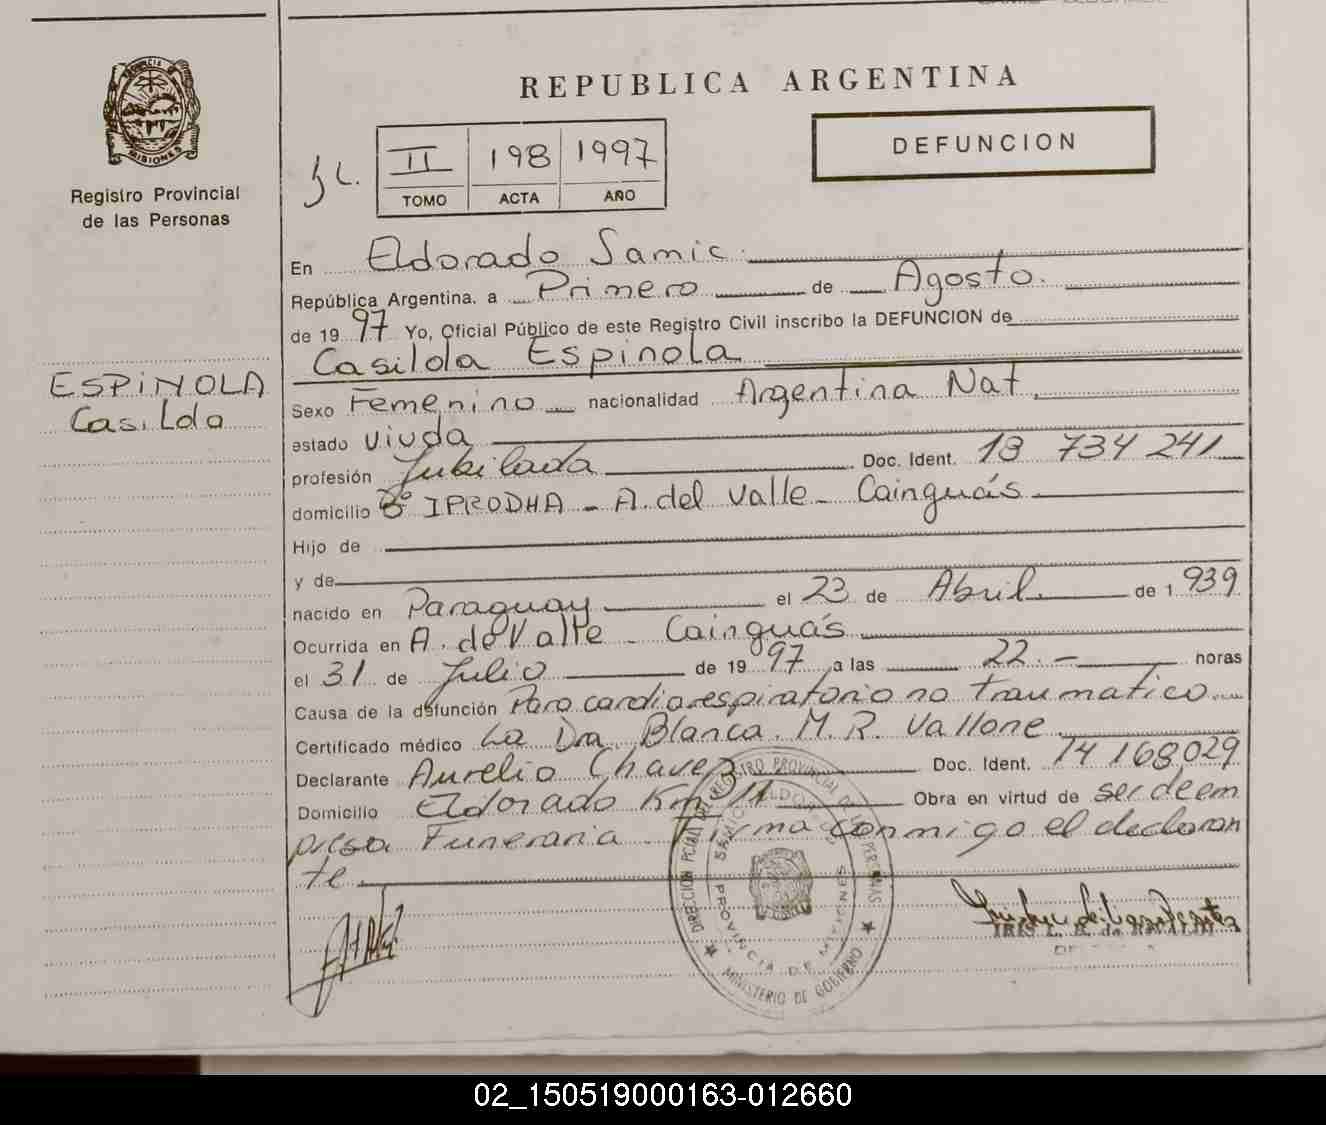 REPUBLICA ARGENTINA
MISIONES
Registro Provincial
de las Personas
II 198 1997
TOMO ACTA AÑO
DEFUNCION
ESPINOLA
Casilda
En Eldorado Samic
República Argentina, a Primero de Agosto.
de 1997 Yo, Oficial Público de este Registro Civil inscribo la DEFUNCION de
Casilda Espinola
Sexo Femenino nacionalidad Argentina Nat.
estado Viuda
profesión Jubilada Doc. Ident. 18 734 241
domicilio Bº IPRODHA - A. del Valle - Cainguás
Hijo de
y de
nacido en Paraguay el 23 de Abril de 1939
Ocurrida en A. del Valle - Cainguás
el 31 de Julio de 1997 a las 22.- horas
Causa de la defunción Paro cardiorespiratorio no traumatico.
Certificado médico La Dra. Blanca. M. R. Vallone
Declarante Aurelio Chavez Doc. Ident. 14 168,029
Domicilio Eldorado Km 11 Obra en virtud de ser de em
presa Funeraria. Firma conmigo el declaran
te
DIRECCION PCIAL DEL REGISTRO PROVINCIAL DE LAS PERSONAS
MINISTERIO DE GOBIERNO
PROVINCIA DE MISIONES
02_150519000163-012660